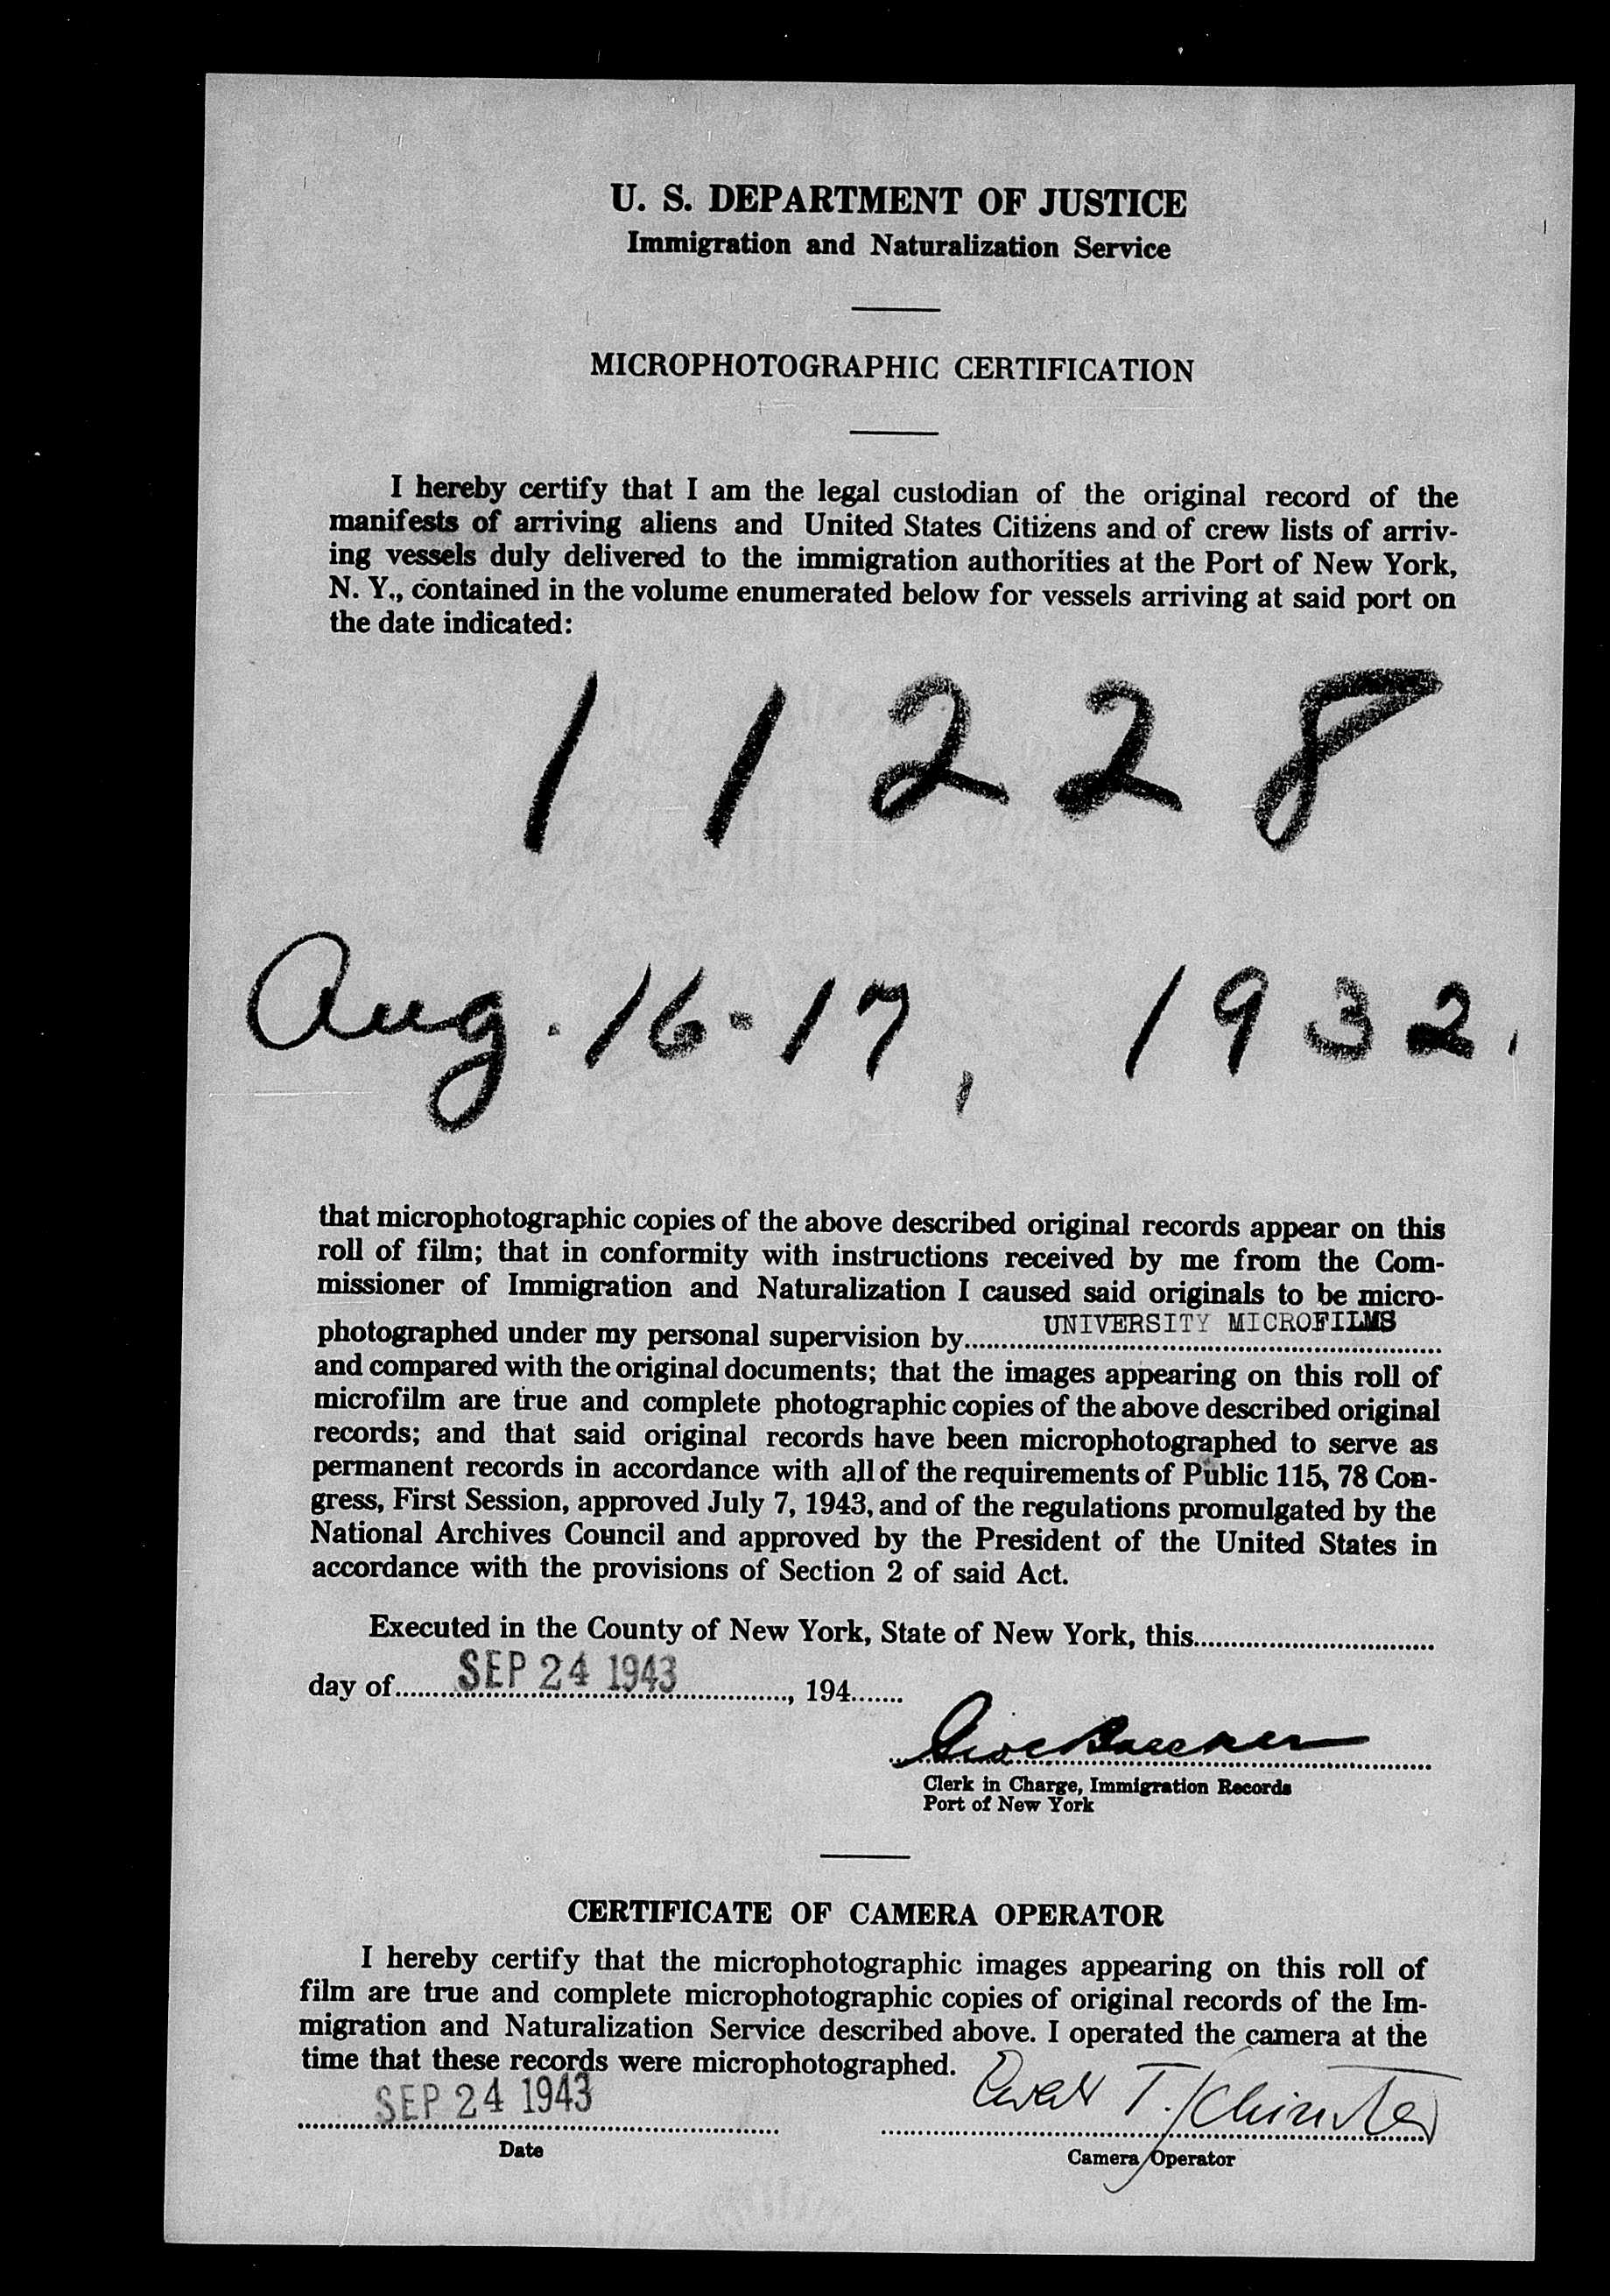 U. S. DEPARTMENT OF JUSTICE
Immigration and Naturalization Service
MICROPHOTOGRAPHIC CERTIFICATION
I hereby certify that I am the legal custodian of the original record of the
manifests of arriving aliens and United States Citizens and of crew lists of arriv-
ing vessels duly delivered to the immigration authorities at the Port of New York,
N. Y., contained in the volume enumerated below for vessels arriving at said port on
the date indicated:
11228
Aug. 16-17, 1932.
that microphotographic copies of the above described original records appear on this
roll of film; that in conformity with instructions received by me from the Com-
missioner of Immigration and Naturalization I caused said originals to be micro-
photographed under my personal supervision by UNIVERSITY MICROFILMS
and compared with the original documents; that the images appearing on this roll of
microfilm are true and complete photographic copies of the above described original
records; and that said original records have been microphotographed to serve as
permanent records in accordance with all of the requirements of Public 115, 78 Con-
gress, First Session, approved July 7, 1943, and of the regulations promulgated by the
National Archives Council and approved by the President of the United States in
accordance with the provisions of Section 2 of said Act.
Executed in the County of New York, State of New York, this
day of SEP 24 1943, 194
Clerk in Charge, Immigration Records
Port of New York
CERTIFICATE OF CAMERA OPERATOR
I hereby certify that the microphotographic images appearing on this roll of
film are true and complete microphotographic copies of original records of the Im-
migration and Naturalization Service described above. I operated the camera at the
time that these records were microphotographed.
SEP 24 1943
Date
Camera Operator